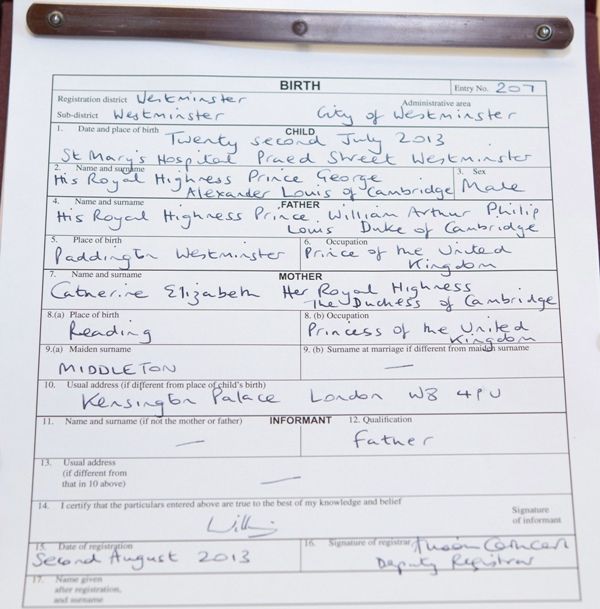 BIRTH
Entry No. 207
Registration district Westminster
Administrative area
Sub-district Westminster City of Westminster
1. Date and place of birth CHILD
Twenty second July 2013
St Mary's Hospital Praed Street Westminster
2. Name and surname 3. Sex
His Royal Highness Prince George
Alexander Louis of Cambridge Male
4. Name and surname FATHER
His Royal Highness Prince William Arthur Philip
Louis Duke of Cambridge
5. Place of birth 6. Occupation
Paddington Westminster Prince of the United
Kingdom
7. Name and surname MOTHER
Catherine Elizabeth Her Royal Highness
The Duchess of Cambridge
8.(a) Place of birth 8. (b) Occupation
Reading Princess of the United
Kingdom
9.(a) Maiden surname 9. (b) Surname at marriage if different from maiden surname
MIDDLETON —
10. Usual address (if different from place of child's birth)
Kensington Palace London W8 4PU
11. Name and surname (if not the mother or father) INFORMANT 12. Qualification
— Father
13. Usual address
(if different from
that in 10 above) —
14. I certify that the particulars entered above are true to the best of my knowledge and belief
Signature
of informant
15. Date of registration 16. Signature of registrar
Second August 2013 Deputy Registrar
17. Name given
after registration,
and surname